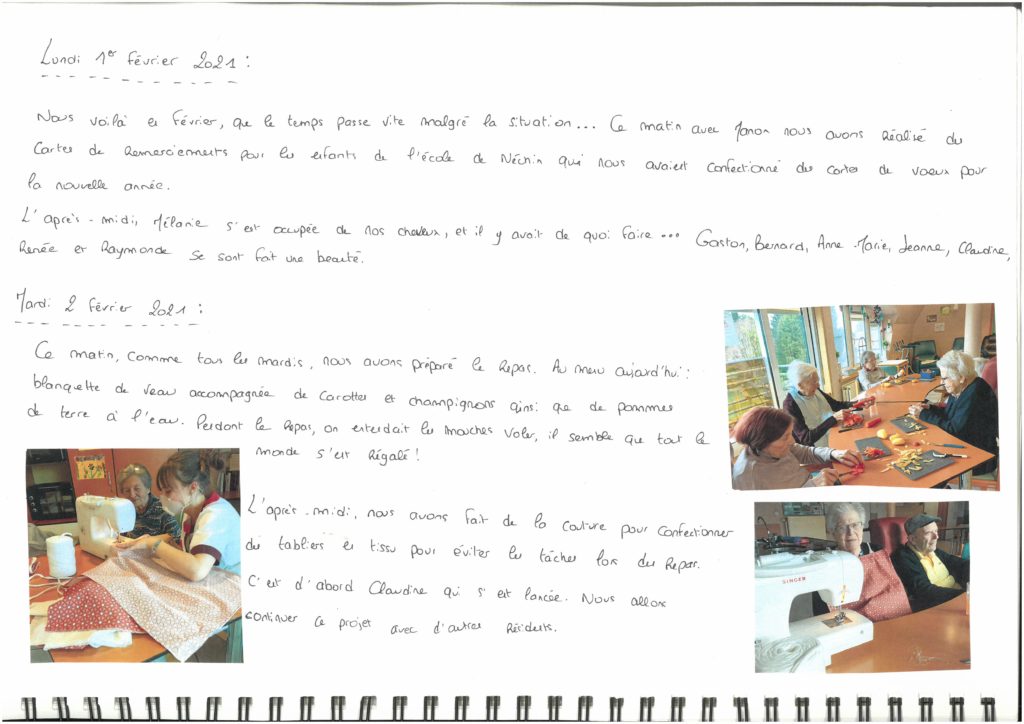 Lundi 1er février 2021 :
Nous voilà en février, que le temps passe vite malgré la situation... Ce matin avec Manon nous avons réalisé des
Cartes de Remerciements pour les enfants de l'école de Néchin qui nous avaient confectionné des cartes de voeux pour
la nouvelle année.
L'après-midi, Mélanie s'est occupée de nos cheveux, et il y avait de quoi faire... Gaston, Bernard, Anne-Marie, Jeanne, Claudine,
Renée et Raymonde se sont fait une beauté.
Mardi 2 février 2021 :
Ce matin, comme tous les mardis, nous avons préparé le Repas. Au menu aujourd'hui :
blanquette de veau accompagnée de carottes et champignons ainsi que de pommes
de terre à l'eau. Pendant le Repas, on entendait les mouches voler, il semble que tout le
monde s'est Régalé !
L'après-midi, nous avons fait de la couture pour confectionner
des tabliers en tissu pour éviter les tâches lors du Repas.
C'est d'abord Claudine qui s'est lancée. Nous allons
continuer ce projet avec d'autres Résidents.
SINGER